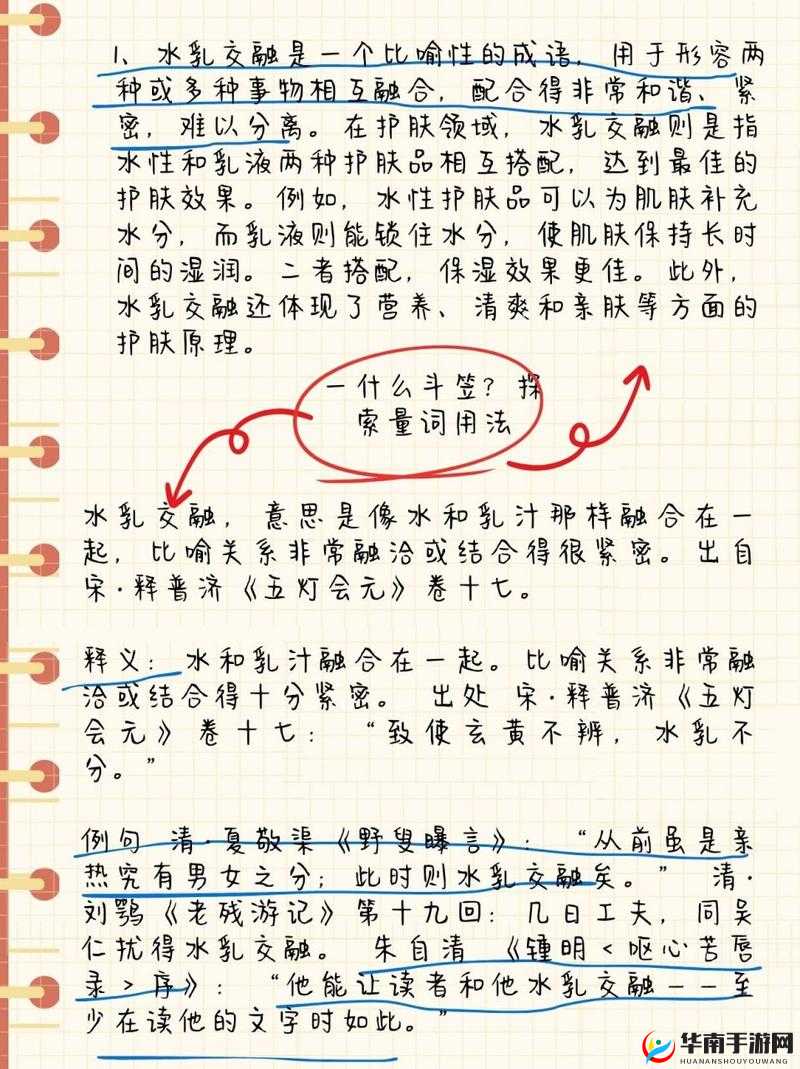 1、水乳交融是一个比喻性的成语，用于形容两
种或多种事物相互融合，配合得非常和谐、紧
密，难以分离。在护肤领域，水乳交融则是指
水性和乳液两种护肤品相互搭配，达到最佳的
护肤效果。例如，水性护肤品可以为肌肤补充
水分，而乳液则能锁住水分，使肌肤保持长时
间的湿润。二者搭配，保湿效果更佳。此外，
水乳交融还体现了营养、清爽和亲肤等方面的
护肤原理。
一什么斗笠？探
索量词用法
水乳交融，意思是像水和乳汁那样融合在一
起，比喻关系非常融洽或结合得很紧密。出自
宋·释普济《五灯会元》卷十七。
释义：水和乳汁融合在一起。比喻关系非常融
洽或结合得十分紧密。 出处 宋·释普济《五灯
会元》卷十七：“致使玄黄不辨，水乳不
分。”
例句 清·夏敬渠《野叟曝言》：“从前虽是亲
热究有男女之分；此时则水乳交融矣。” 清·
刘鹗《老残游记》第十九回：几日工夫，同吴
仁扰得水乳交融。 朱自清 《锺明<呕心苦唇
录>序》：“他能让读者和他水乳交融——至
少在读他的文字时如此。”
华南手游网
HUANANSHOUYOUWANG